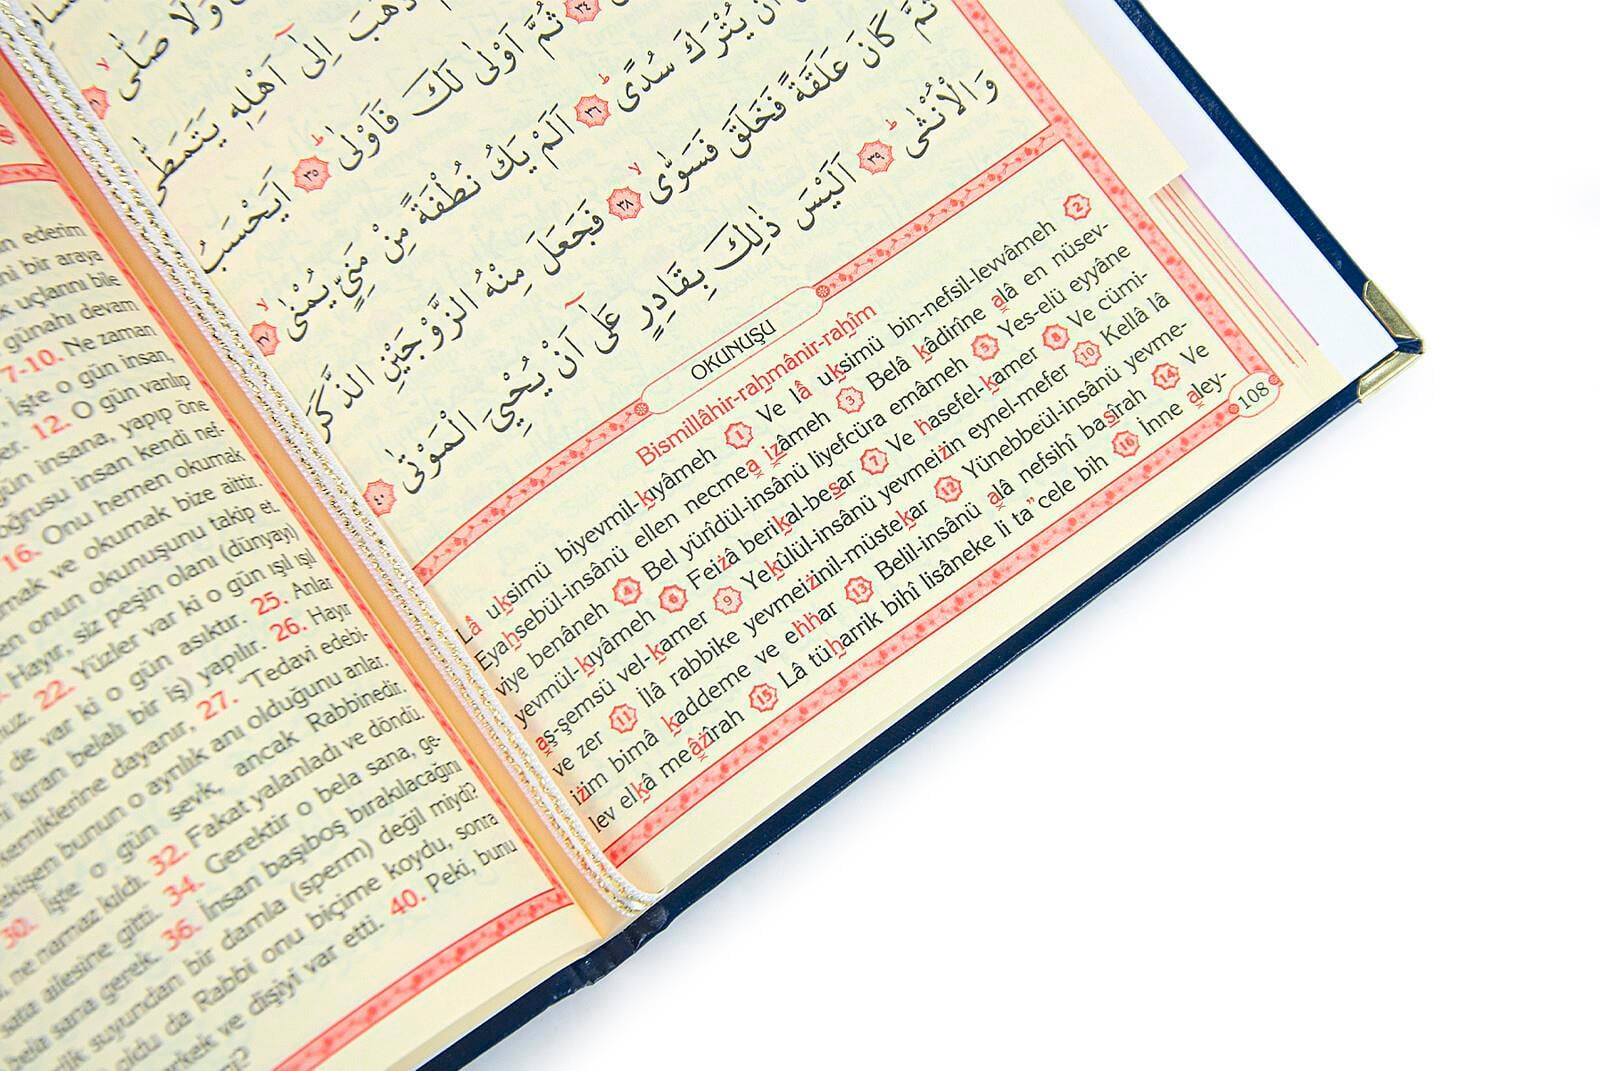 n ederim
ni bir araya
k uçlarını bile
günahı devam
7-10. Ne zaman
, İşte o gün insan,
er. 12. O gün varılıp
gün insana, yapıp öne
oğrusu insan kendi nef-
16. Onu hemen okumak
mak ve okumak bize aittir.
en onun okunuşunu takip et.
Hayır, siz peşin olanı (dünyayı)
nuz. 22. Yüzler var ki o gün ışıl ışıl
de var ki o gün asıktır. 25. Anlar
ni kıran belalı bir iş) yapılır. 26. Hayır
kemiklerine dayanır, 27. "Tedavi edebi-
ekişen bunun o ayrılık anı olduğunu anlar.
30. İşte o gün sevk, ancak Rabbinedir.
ne namaz kıldı. 32. Fakat yalanladı ve döndü.
sata ailesine gitti. 34. Gerektir o bela sana, ge-
bela sana gerek. 36. İnsan başıboş bırakılacağını
ilk suyundan bir damla (sperm) değil miydi?
oldu da Rabbi onu biçime koydu, sonra
erkek ve dişiyi var etti. 40. Peki, bunu
وَلَا صَلّٰى
ذَهَبَ اِلٰٓى اَهْلِهٖ يَتَمَطّٰى
٣٤ ثُمَّ اَوْلٰى لَكَ فَاَوْلٰى ٣٥ اَيَحْسَبُ
اَنْ يُتْرَكَ سُدًى ٣٦ اَلَمْ يَكُ نُطْفَةً مِنْ مَنِيٍّ يُمْنٰى
ثُمَّ كَانَ عَلَقَةً فَخَلَقَ فَسَوّٰى ٣٨ فَجَعَلَ مِنْهُ الزَّوْجَيْنِ الذَّكَرَ
وَالْاُنْثٰى ٣٩ اَلَيْسَ ذٰلِكَ بِقَادِرٍ عَلٰٓى اَنْ يُحْيِيَ الْمَوْتٰى ٤٠
OKUNUŞU
Bismillâhir-rahmânir-rahîm
Lâ uksimü biyevmil-kıyâmeh 1 Ve lâ uksimü bin-nefsil-levvâmeh 2
Eyahsebül-insânü ellen necmea izâmeh 3 Belâ kâdirîne alâ en nüsev-
viye benâneh 4 Bel yürîdül-insânü liyefcüra emâmeh 5 Yes-elü eyyâne
yevmül-kıyâmeh 6 Feizâ berikal-besar 7 Ve hasefel-kamer 8 Ve cümi-
aş-şemsü vel-kamer 9 Yekûlül-insânü yevmeizin eynel-mefer 10 Kellâ lâ
ve zer 11 İlâ rabbike yevmeizinil-müstekar 12 Yünebbeül-insânü yevme-
izim bimâ kaddeme ve ehhar 13 Belil-insânü alâ nefsihî basîrah 14 Ve
lev elkâ meâzîrah 15 Lâ tüharrik bihî lisâneke li ta"cele bih 16 İnne aley-
108